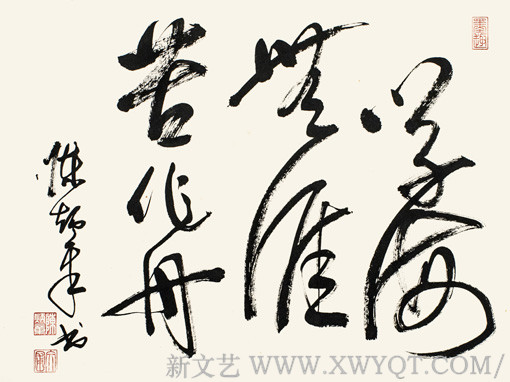 学海
無涯
苦作舟
陳 年书
新文艺 WWW.XWYQT.COM/